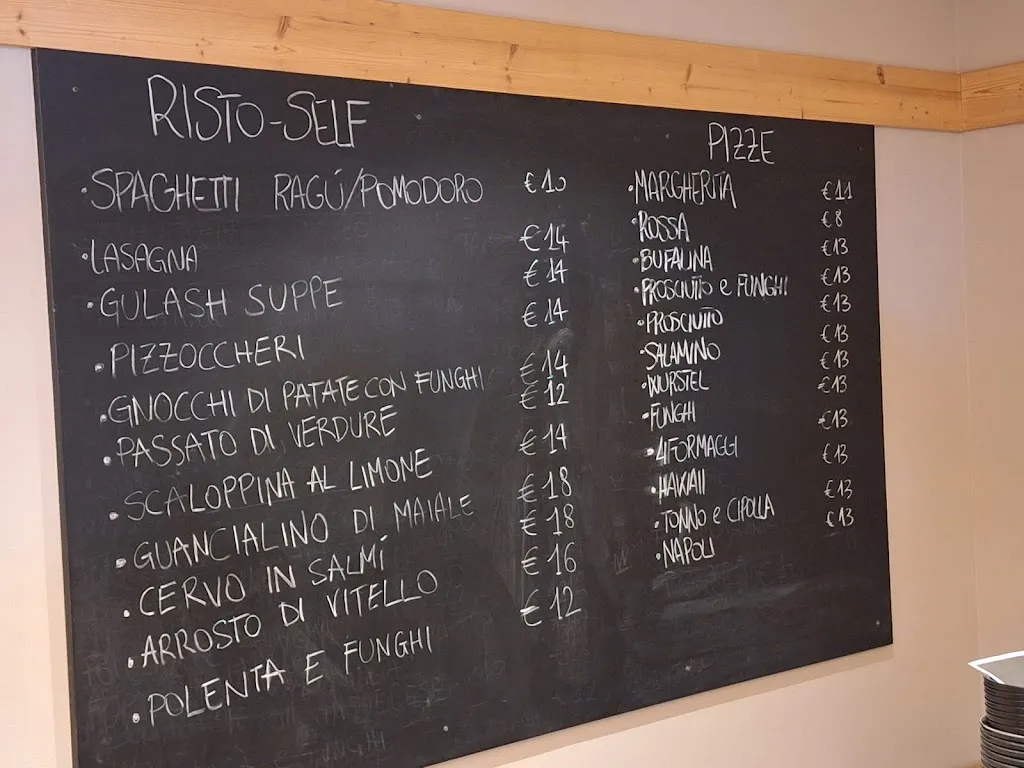 RISTO-SELF
·SPAGHETTI RAGÚ/POMODORO €10
·LASAGNA €14
·GULASH SUPPE €14
·PIZZOCCHERI €14
·GNOCCHI DI PATATE CON FUNGHI €14
·PASSATO DI VERDURE €12
·SCALOPPINA AL LIMONE €14
·GUANCIALINO DI MAIALE €18
·CERVO IN SALMÍ €18
·ARROSTO DI VITELLO €16
·POLENTA E FUNGHI €12
PIZZE
·MARGHERITA €11
·ROSSA €8
·BUFALINA €13
·PROSCIUTTO e FUNGHI €13
·PROSCIUTTO €13
·SALAMINO €13
·WURSTEL €13
·FUNGHI €13
·4 FORMAGGI €13
·HAWAII €13
·TONNO e CIPOLLA €13
·NAPOLI €13